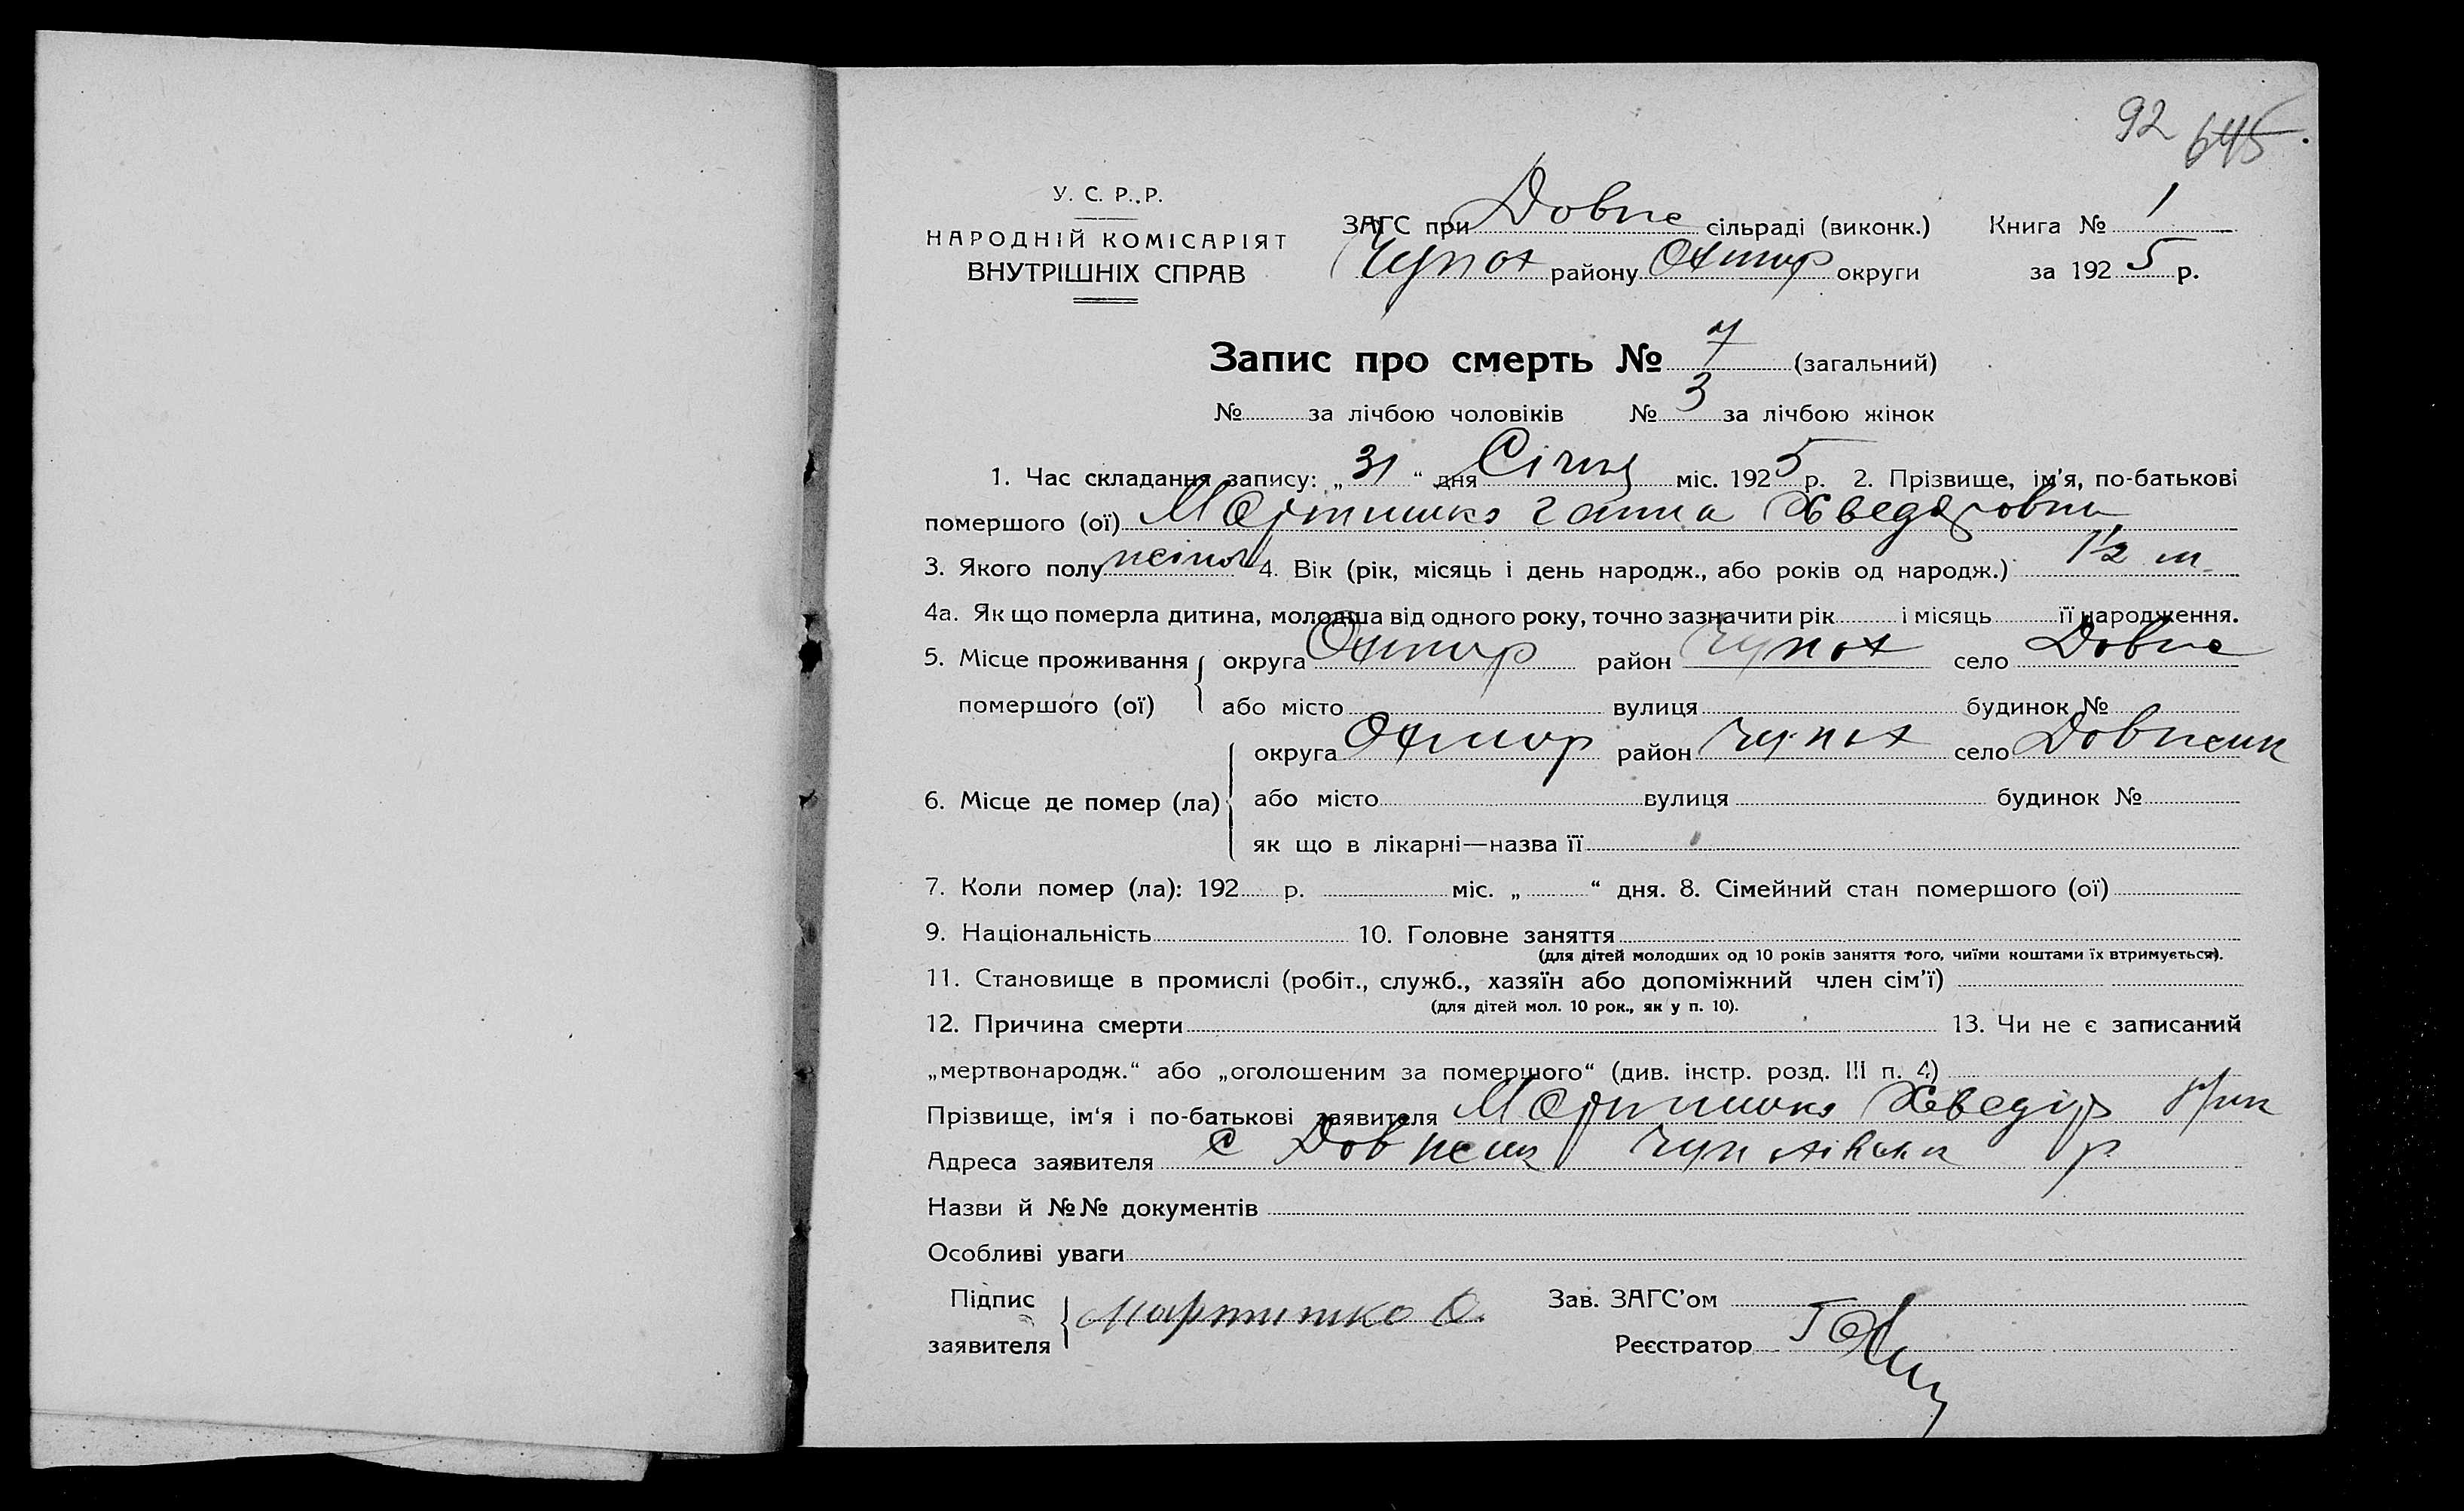 92 645.
У. С. Р. Р.
НАРОДНІЙ КОМІСАРІЯТ
ВНУТРІШНІХ СПРАВ
ЗАГС при Довже сільраді (виконк.) Книга № 1
Чупах району Охтир округи за 1925 р.
Запис про смерть № 7 (загальний)
№ за лічбою чоловіків № 3 за лічбою жінок
1. Час складання запису: „31“ дня Січня міс. 1925 р. 2. Прізвище, ім'я, по-батькові
помершого (ої) Мартишко Ганна Хведоровна
3. Якого полу жіноч 4. Вік (рік, місяць і день народж., або років од народж.) 1½ м.
4а. Як що померла дитина, молодша від одного року, точно зазначити рік і місяць її народження.
5. Місце проживання округа Охтир район Чупах село Довже
помершого (ої) або місто вулиця будинок №
округа Охтир район Чупах село Довжик
6. Місце де помер (ла) або місто вулиця будинок №
як що в лікарні—назва її
7. Коли помер (ла): 192 р. міс. „ “ дня. 8. Сімейний стан помершого (ої)
9. Національність 10. Головне заняття
(для дітей молодших од 10 років заняття того, чиїми коштами їх втримується).
11. Становище в промислі (робіт., служб., хазяїн або допоміжний член сім'ї)
(для дітей мол. 10 рок., як у п. 10).
12. Причина смерти 13. Чи не є записаний
„мертвонародж.“ або „оголошеним за помершого“ (див. інстр. розд. III п. 4)
Прізвище, ім'я і по-батькові заявителя Мартишко Хведір
Адреса заявителя с Довжик р
Назви й №№ документів
Особливі уваги
Підпис
заявителя Мартишко
Зав. ЗАГС'ом
Реєстратор